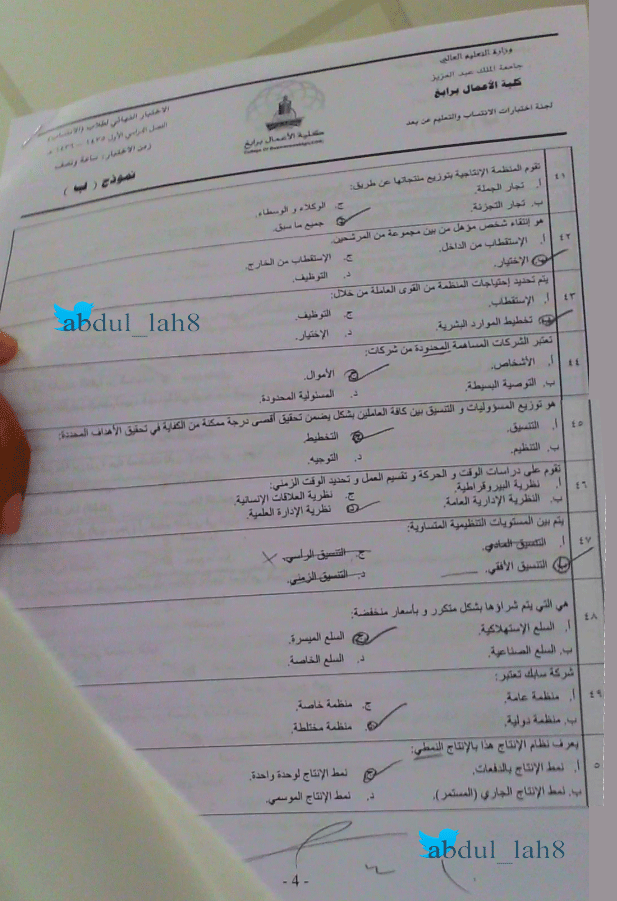 وزارة التعليم العالي
جامعة الملك عبد العزيز
كلية الأعمال برابغ
لجنة اختبارات الانتساب والتعليم عن بعد
كلية الأعمال برابغ
الاختبار النهائي لطلاب (الانتساب)
الفصل الدراسي الأول ١٤٣٥ – ١٤٣٦ هـ
زمن الاختبار: ساعة ونصف
نموذج ( ب )
٤١ تقوم المنظمة الإنتاجية بتوزيع منتجاتها عن طريق:
أ. تجار الجملة. ج. الوكلاء و الوسطاء.
ب. تجار التجزئة. جميع ما سبق.
٤٢ هو إنتقاء شخص مؤهل من بين مجموعة من المرشحين.
أ. الإستقطاب من الداخل. ج. الإستقطاب من الخارج.
الإختيار. د. التوظيف.
٤٣ يتم تحديد إحتياجات المنظمة من القوى العاملة من خلال:
أ. الإستقطاب. ج. التوظيف.
تخطيط الموارد البشرية. د. الإختيار.
abdul_lah8
٤٤ تعتبر الشركات المساهمة المحدودة من شركات:
أ. الأشخاص. ج. الأموال.
ب. التوصية البسيطة. د. المسئولية المحدودة.
٤٥ هو توزيع المسؤوليات و التنسيق بين كافة العاملين بشكل يضمن تحقيق أقصى درجة ممكنة من الكفاية في تحقيق الأهداف المحددة:
أ. التنسيق. التخطيط.
ب. التنظيم. د. التوجيه.
٤٦ تقوم على دراسات الوقت و الحركة و تقسيم العمل و تحديد الوقت الزمني:
أ. نظرية البيروقراطية. ج. نظرية العلاقات الإنسانية.
ب. النظرية الإدارية العامة. د. نظرية الإدارة العلمية.
٤٧ يتم بين المستويات التنظيمية المتساوية:
أ. التنسيق العادي. ج. التنسيق الرأسي.
ب. التنسيق الأفقي. د. التنسيق الزمني.
٤٨ هي التي يتم شراؤها بشكل متكرر و بأسعار منخفضة:
أ. السلع الإستهلاكية. ج. السلع الميسرة.
ب. السلع الصناعية. د. السلع الخاصة.
٤٩ شركة سابك تعتبر:
أ. منظمة عامة. ج. منظمة خاصة.
ب. منظمة دولية. د. منظمة مختلطة.
٥ يعرف نظام الإنتاج هذا بالإنتاج النمطي:
أ. نمط الإنتاج بالدفعات. ج. نمط الإنتاج لوحدة واحدة.
ب. نمط الإنتاج الجاري (المستمر). د. نمط الإنتاج الموسمي.
abdul_lah8
- 4 -